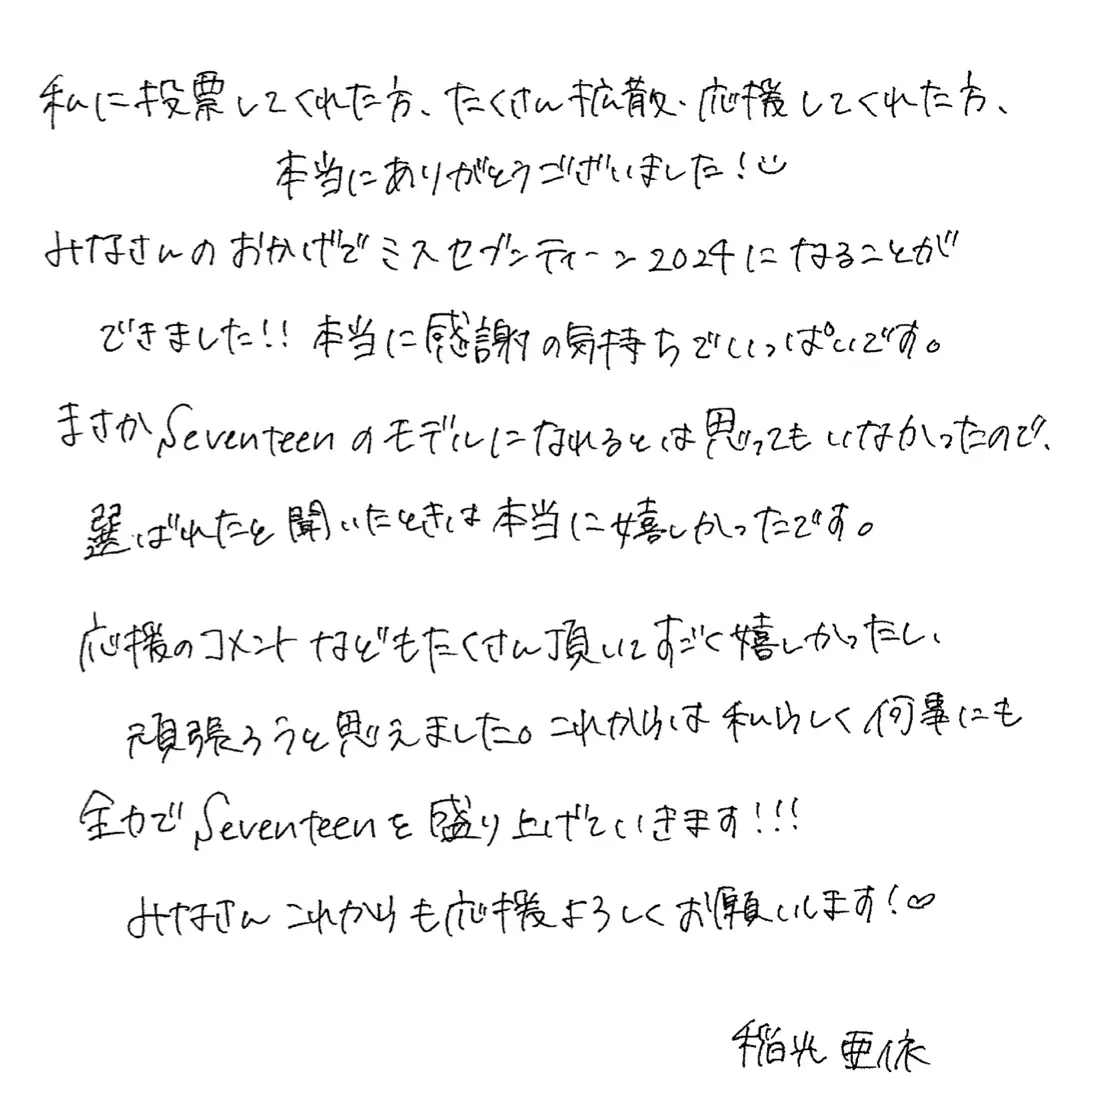 私に投票してくれた方、たくさん拡散・応援してくれた方、
本当にありがとうございました!
みなさんのおかげでミスセブンティーン2024になることが
できました!!本当に感謝の気持ちでいっぱいです。
まさかSeventeenのモデルになれるとは思ってもいなかったので、
選ばれたと聞いたときは本当に嬉しかったです。
応援のコメントなどもたくさん頂いてすごく嬉しかったし、
頑張ろうと思えました。これからは私らしく何事にも
全力でSeventeenを盛り上げていきます!!!
みなさんこれからも応援よろしくお願いします!♡
稲光亜依